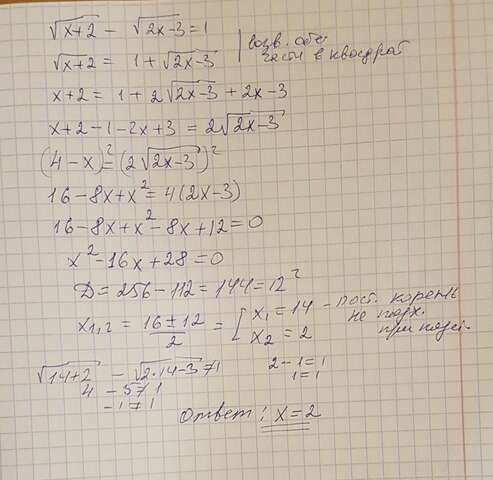 √(x+2) - √(2x-3) = 1
√(x+2) = 1 + √(2x-3) | возв. обе части в квадрат
x+2 = 1 + 2√(2x-3) + 2x-3
x+2-1-2x+3 = 2√(2x-3)
(4-x)² = (2√(2x-3))²
16-8x+x² = 4(2x-3)
16-8x+x²-8x+12=0
x²-16x+28=0
D=256-112=144=12²
x₁,₂ = (16±12)/2 = [ x₁=14 - пост. корень не подх.
x₂=2
√(14+2) - √(2·14-3) ≠ 1
4 - 5 ≠ 1
-1 ≠ 1
2-1=1
1=1
Ответ: x=2